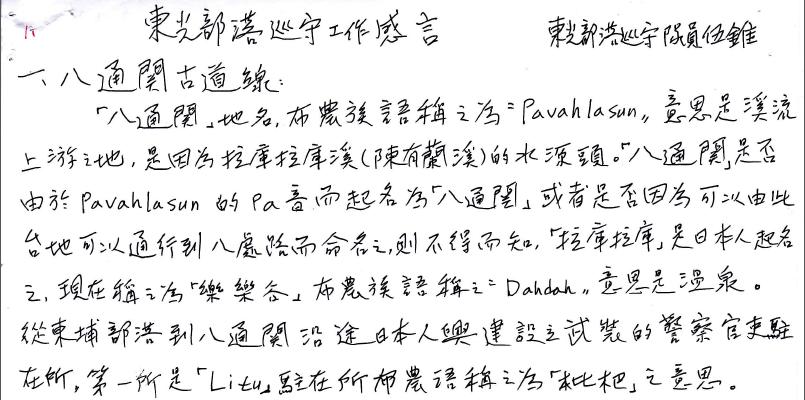 東光部落巡守工作感言
東光部落巡守隊員伍錐
一、八通關古道線:
「八通關」地名,布農族語稱之為"Pavahlasun",意思是溪流
上游之地,是因為拉庫拉庫溪(陳有蘭溪)的水源頭。「八通關」是否
由於Pavahlasun的Pa音而起名為「八通關」或者是否因為可以由此
台地可以通行到八處路而命名之,則不得而知,「拉庫拉庫」是日本人起名
之,現在稱之為「樂樂谷」布農族語稱之"Dahdah",意思是溫泉。
從東埔部落到八通關沿途日本人興建設立武裝的警察官吏駐
在所,第一所是「Litu」駐在所布農語稱之為「枇杷」之意思。